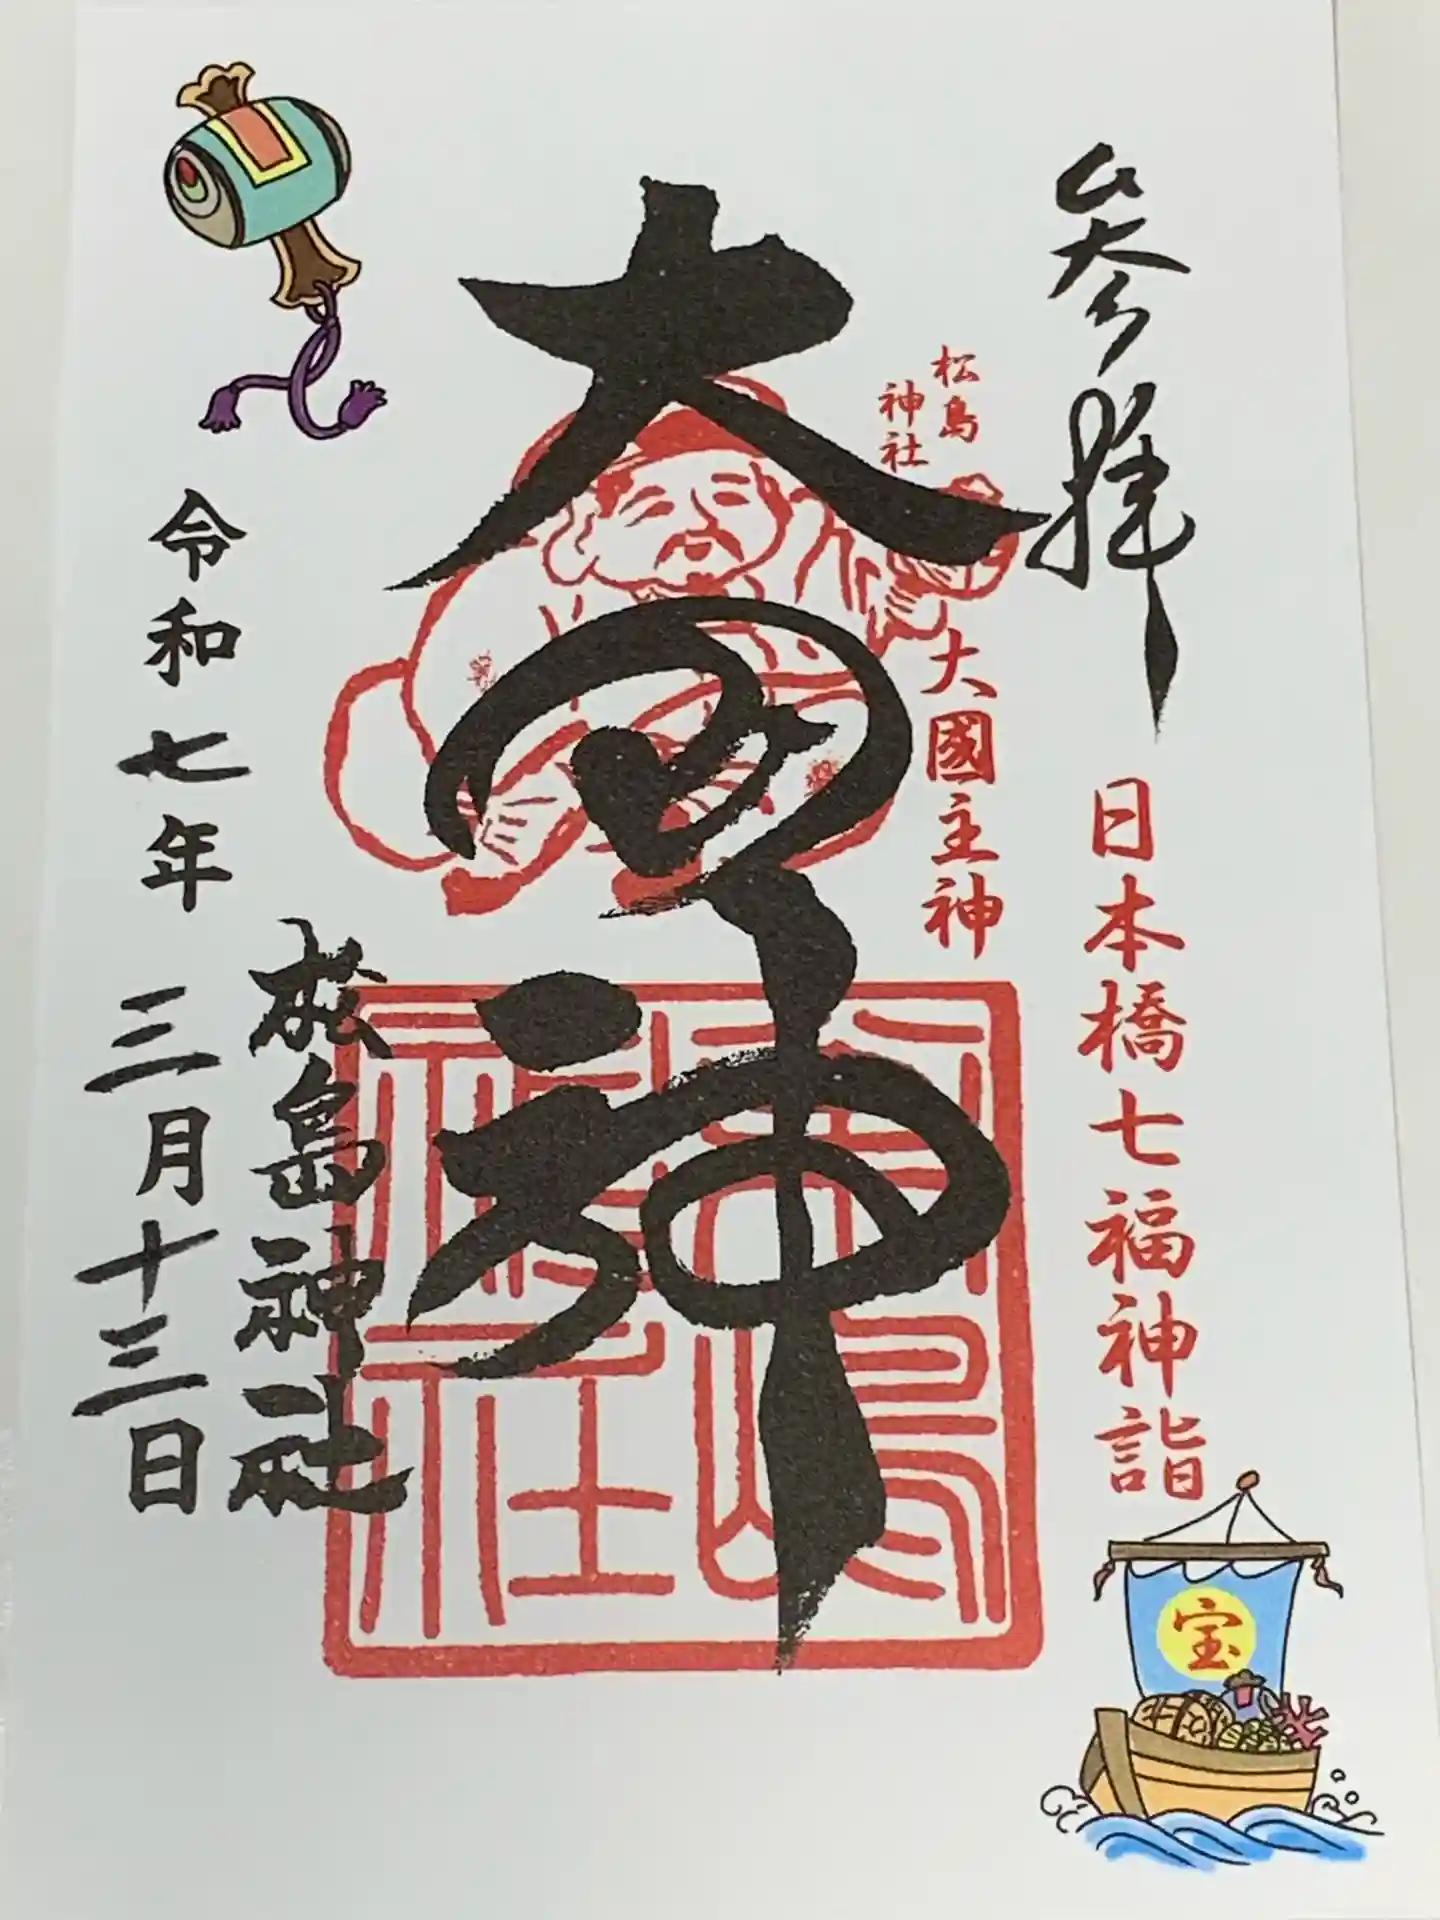 参拝
日本橋七福神詣
宝
松島
神社
大國主神
大国神
松島神社
令和七年 三月十三日